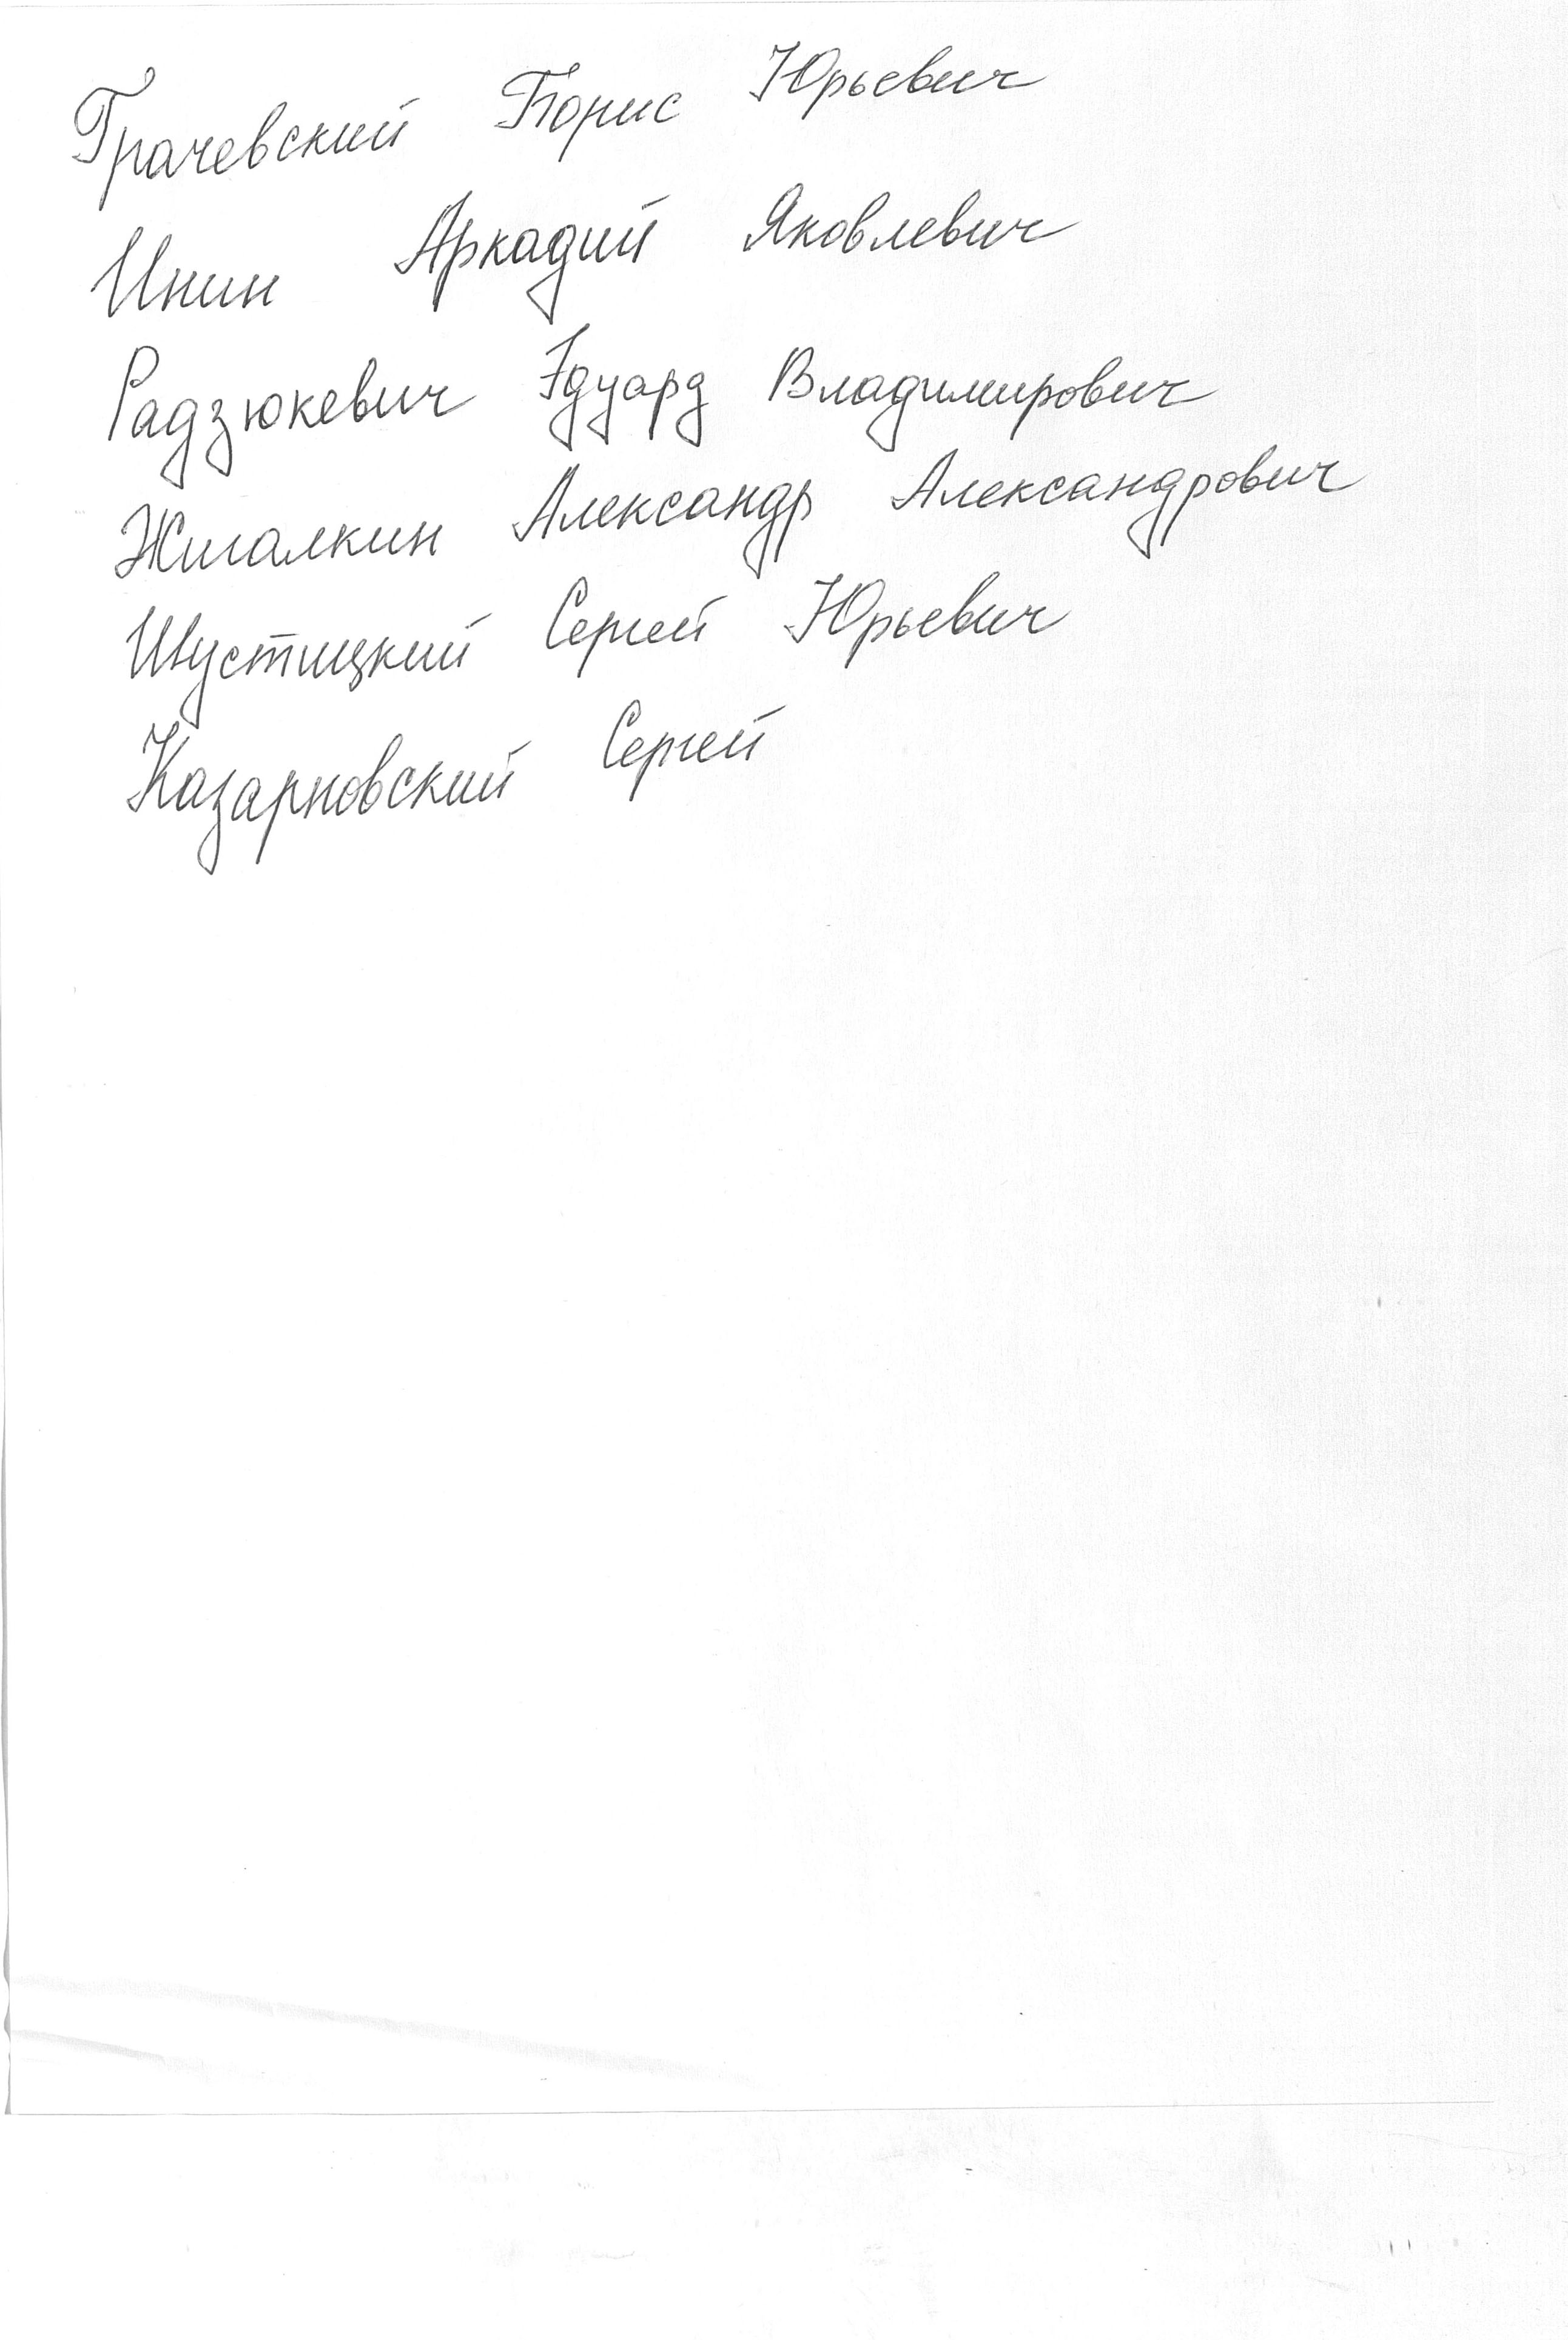 Грачевский Борис Юрьевич
Инин Аркадий Яковлевич
Радзюкевич Эдуард Владимирович
Жигалкин Александр Александрович
Шустицкий Сергей Юрьевич
Казарновский Сергей